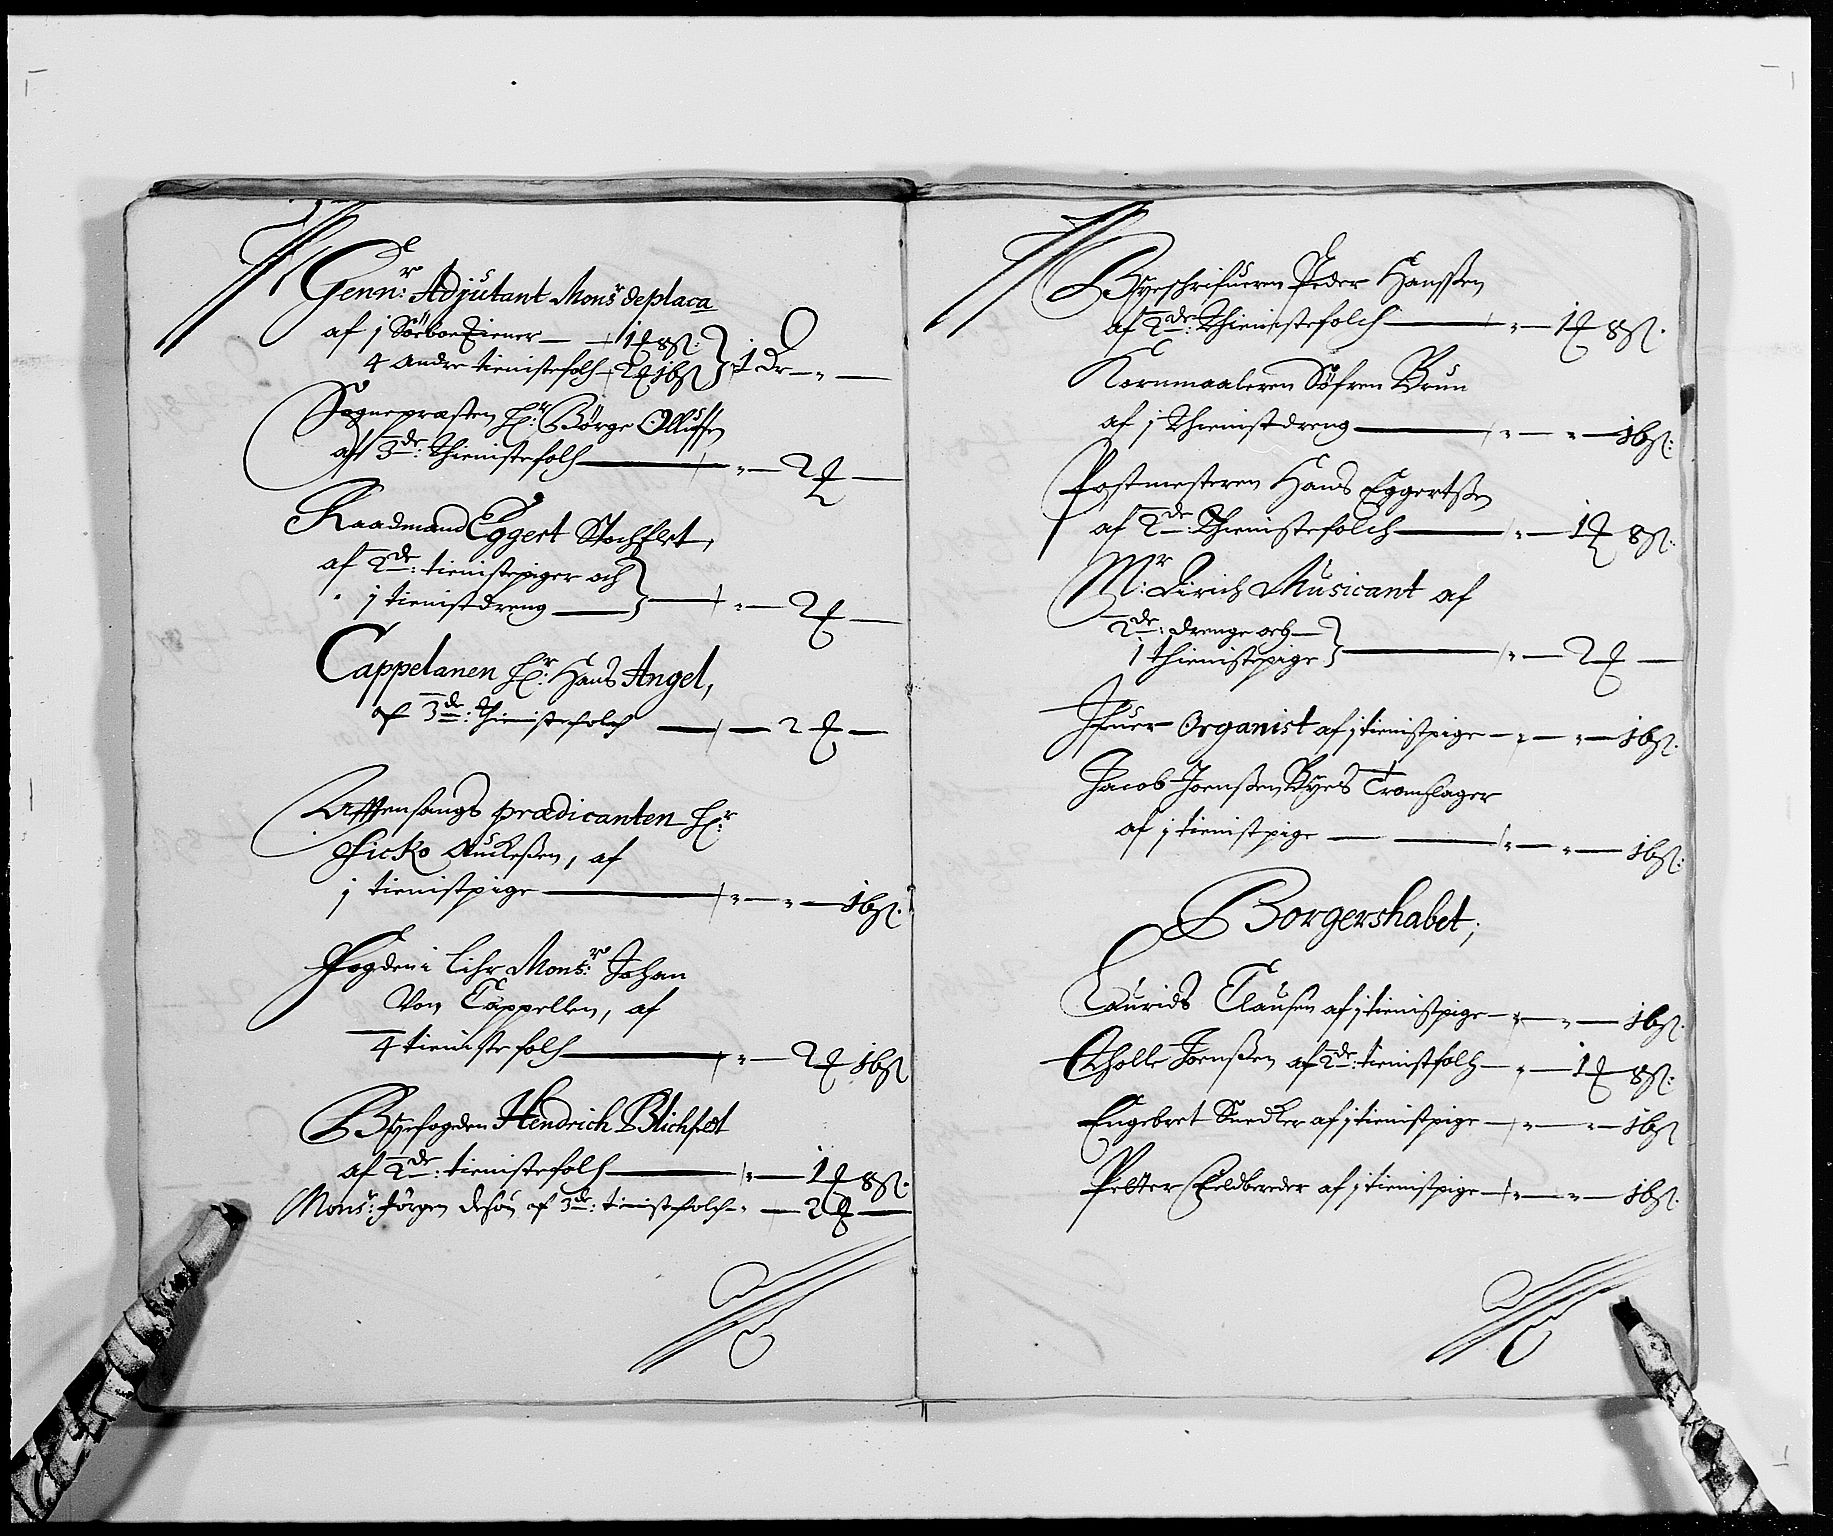 Genn:r Adjutant Monsr deplaca
af j Søeboe Tiener — 1 ℔ 8 ß:
4 andre tienistefolch 2 ℔ 16 ß } 1 Dr — „ —
Sognepræsten Hr: Børge Olluffsen
af 3de: thienistefolch — „ — 2 ℔ —
Raadmand Eggert Stochflet,
af 2de: tienistepiger och
„ j tienistdreng } — „ — 2 ℔ —
Cappelanen Hr: Hans Angel,
af 3de: thienistefolch — — 2 ℔ —
Afftensangs prædicanten Hr:
Ficko Auckeßen, af
j tienistpige — „ — „ — 16 ß:
Fogden i Lihr Monsr: Johan
Von Cappellen, af
4 tienistefolch — „ — 2 ℔ 16 ß
Byefogden Hendrich Blichfelt
af 2de: tienistefolch — „ — 1 ℔ 8 ß:
Monsr: Jørgen af 3de: tienistefolch — „ — 2 ℔ —
Byeschrifueren Peder Hanssen
af 2de: thienistefolch — „ — 1 ℔ 8 ß:
Kornmaaleren Søfren Brun
af j thienistdreng — „ — „ — 16 ß:
Postmesteren Hans Eggertßen
af 2de: thienistefolch — „ — 1 ℔ 8 ß:
Mr: Dirich Musicant af
2de: drenge och —
1 thienistepige } — „ — 2 ℔ —
Ifuer Organist af j tienistpige — „ — „ — 16 ß:
Jacob Joenßen Byes Tromslager
af j tienistpige — — „ — „ — 16 ß:
Borgerskabet;
Laurids Clausen af j tienistpige — „ — „ — 16 ß:
Tholle Joenßen af 2de: tienistfolch — „ — 1 ℔ 8 ß:
Engebret Snedker af j tienistpige — „ — „ — 16 ß
Petter Feldbereder af j tienistpige — „ — „ — 16 ß: